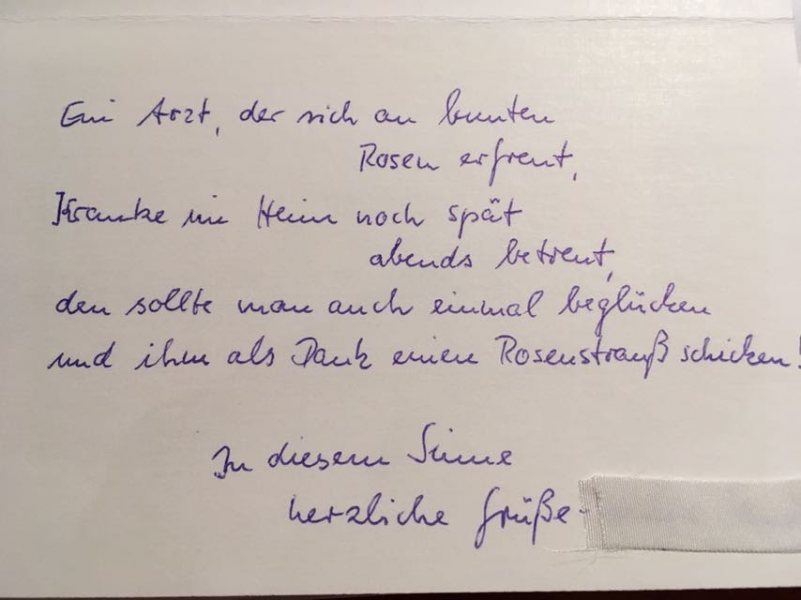 Ein Arzt, der sich an bunten
Rosen erfreut,
Kranke im Heim noch spät
abends betreut,
den sollte man auch einmal beglücken
und ihm als Dank einen Rosenstrauß schicken!
In diesem Sinne
herzliche Grüße